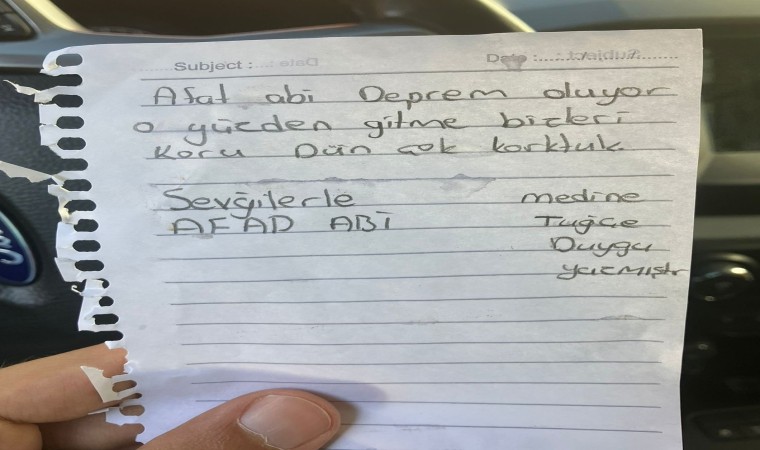 Subject : Date :
Afat abi Deprem oluyor
o yüzden gitme bizleri
Koru Dün çok korktuk
Sevgilerle medine
AFAD ABİ Tuğçe
Duygu
yazmıştır